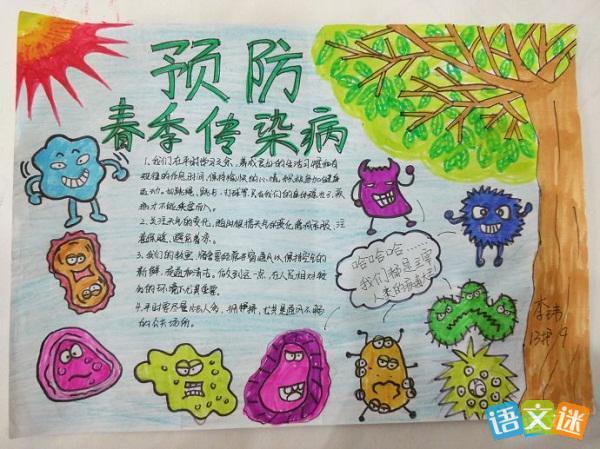 预防
春季传染病
1.我们在平时学习之余,养成良好的生活习惯和有
规律的作息时间,保持愉快的心情,积极参加健身
运动。如跳绳、跑步、打球等,只有我们的身体强壮了,抵
抗力才能
2.关注天气的变化,随时根据天气的变化增减衣服,注
意保暖,避免着凉。
3.我们的教室、宿舍要经常开窗通风,保持空气的
新鲜,
的环境下尤其重要。
4.平时要尽量少去人多、拥挤、尤其是通风不畅
的公共场所。
哈哈哈……
我们都是主宰
人类的病毒大王
李玮
13班 4
语文迷